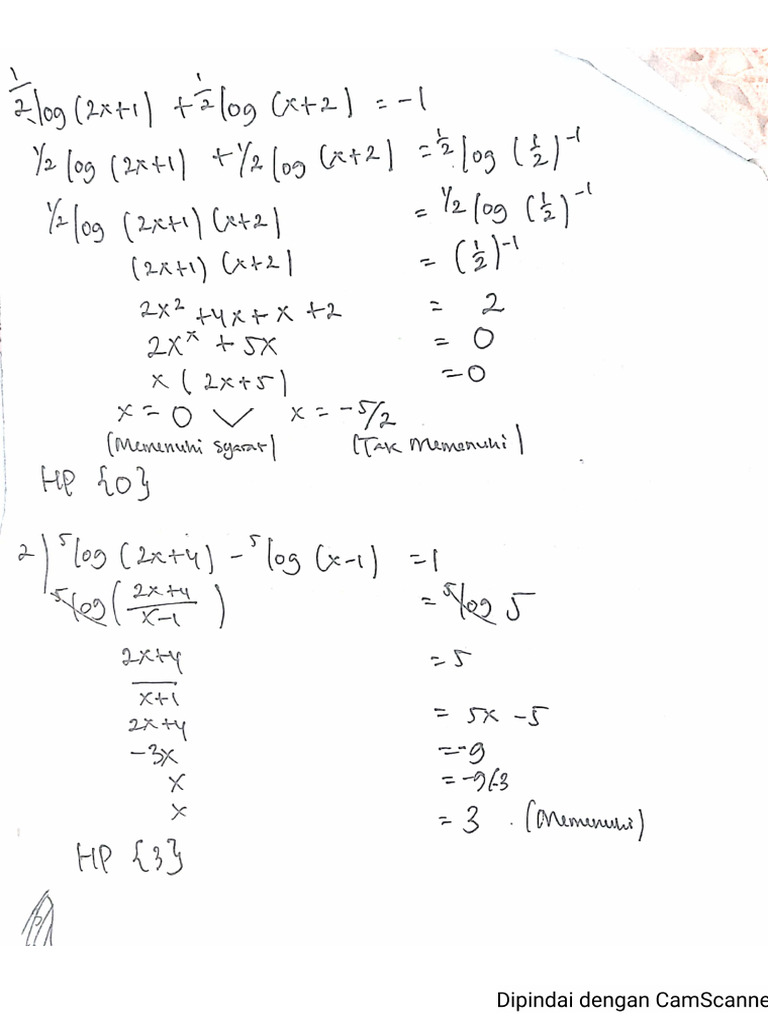 1/2 log (2x+1) + 1/2 log (x+2) = -1
1/2 log (2x+1) + 1/2 log (x+2) = 1/2 log (1/2)^-1
1/2 log (2x+1) (x+2) = 1/2 log (1/2)^-1
(2x+1) (x+2) = (1/2)^-1
2x² + 4x + x + 2 = 2
2x^x + 5x = 0
x (2x+5) = 0
x = 0 ∨ x = -5/2
(Memenuhi syarat) (Tak Memenuhi)
HP {0}
2) ⁵log (2x+4) - ⁵log (x-1) = 1
⁵log (2x+4/x-1) = ⁵log 5
2x+4/x+1 = 5
2x+4 = 5x - 5
-3x = -9
x = -9/-3
x = 3 . (Memenuhi)
HP {3}
Dipindai dengan CamScanne